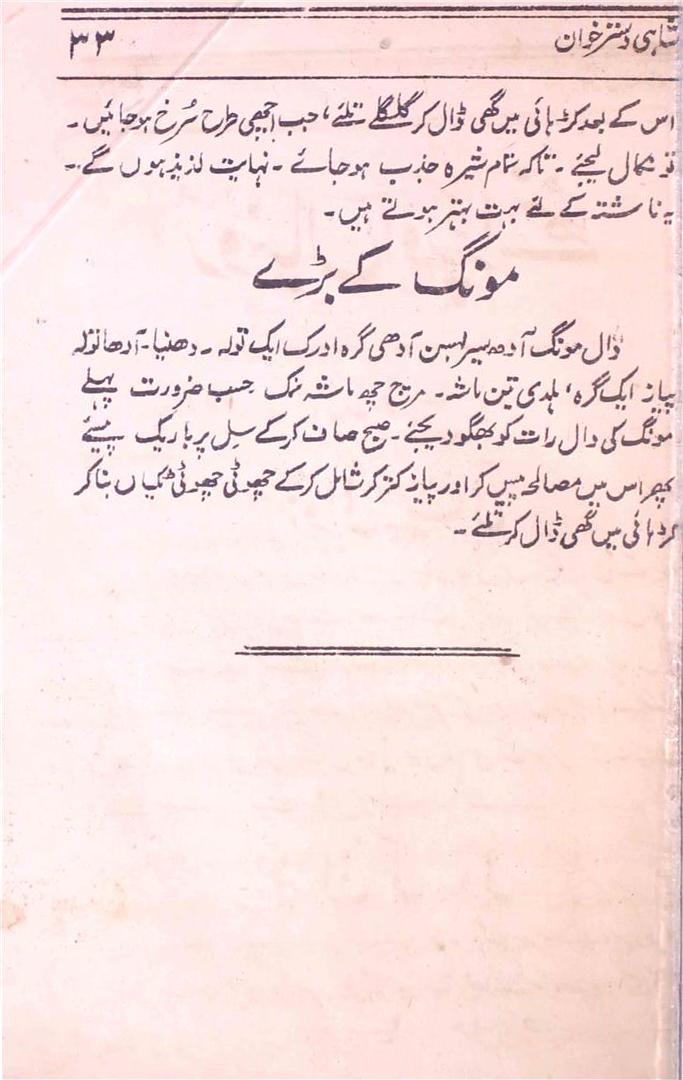 شاہی دسترخوان ۳۳
اس کے بعد کڑہائی میں گھی ڈال کر گلگلے تلئے، جب اچھی طرح سُرخ ہوجائیں۔
تو نکال لیجئے۔ تاکہ تمام شیرہ جذب ہوجائے۔ نہایت لذیذ ہوں گے۔
یہ ناشتہ کے لئے بہت بہتر ہوتے ہیں۔
مونگ کے بڑے
دال مونگ آدھ سیر لہسن آدھی گرہ ادرک ایک تولہ۔ دھنیا۔ آدھا تولہ
پیاز ایک گرہ، ہلدی تین ماشہ۔ مرچ چھ ماشہ نمک حسب ضرورت پہلے
مونگ کی دال رات کو بھگو دیجئے۔ صبح صاف کرکے سِل پر باریک پیسئے
پھر اس میں مصالحہ پیس کر اور پیاز کتر کر شامل کرکے چھوٹی چھوٹی ٹکیاں بنا کر
کڑہائی میں گھی ڈال کر تلئے۔